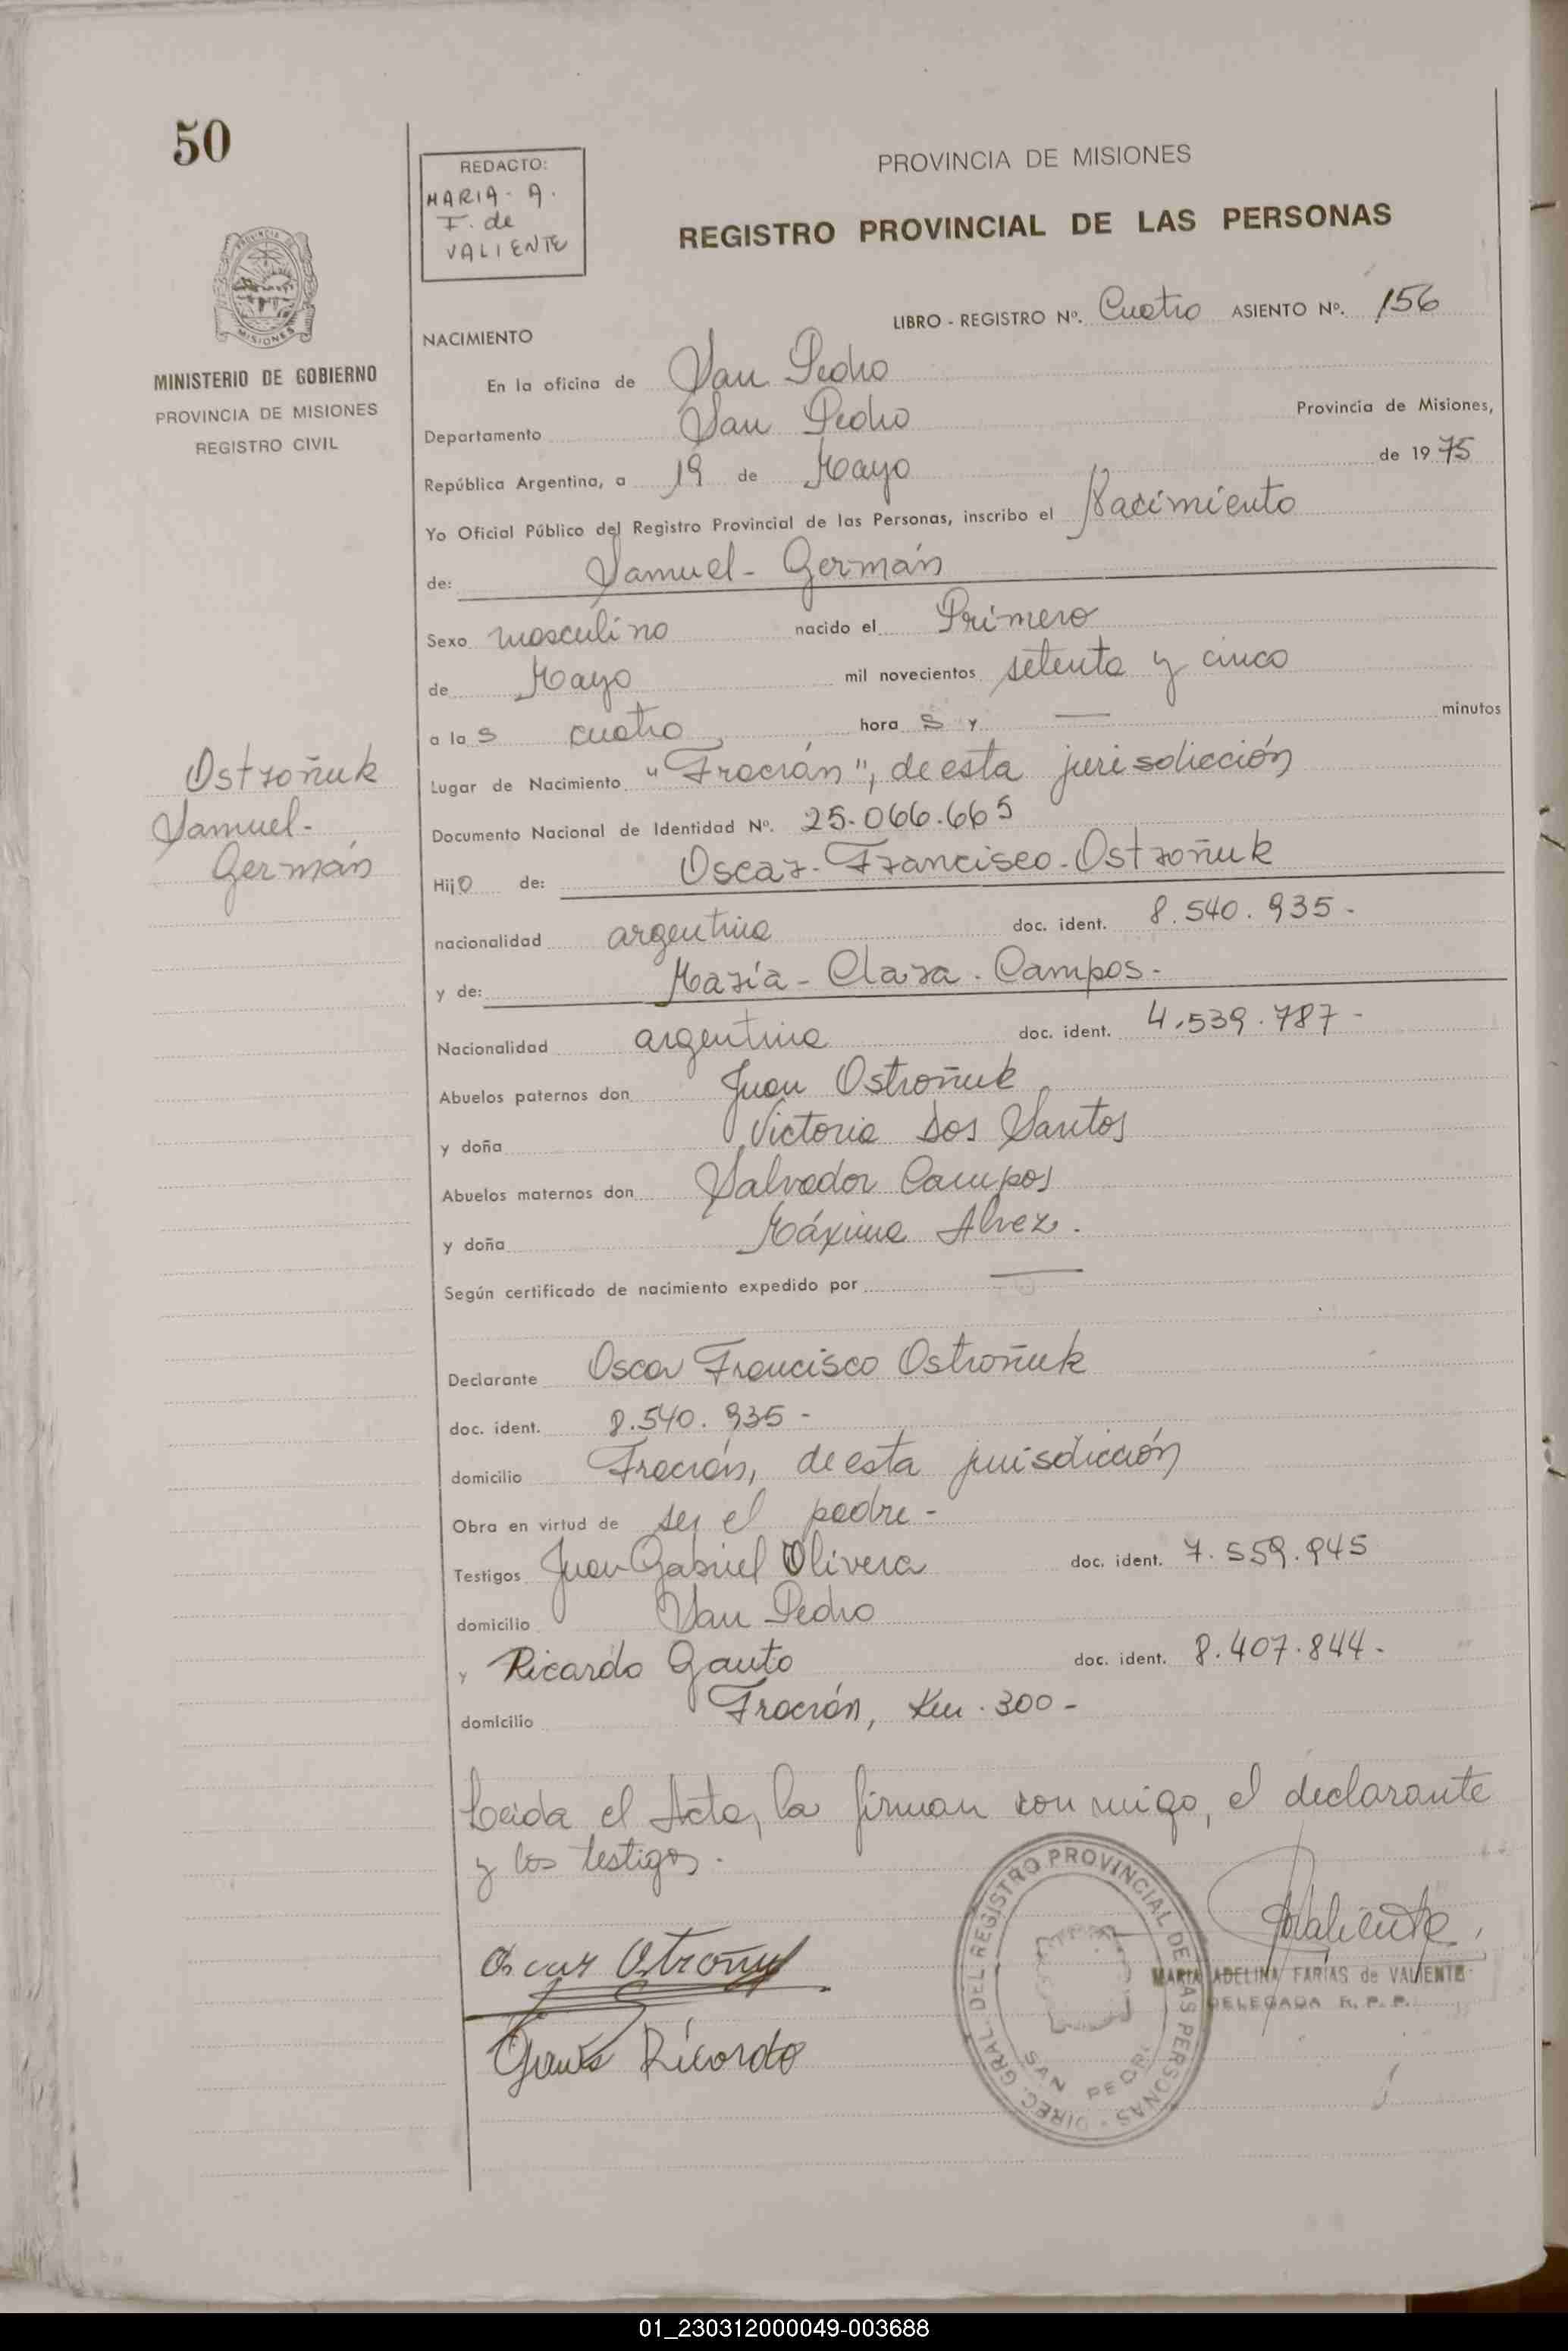 50
REDACTO:
MARIA - A.
F. de
VALIENTE
PROVINCIA DE MISIONES
REGISTRO PROVINCIAL DE LAS PERSONAS
PROVINCIA DE
MISIONES
MINISTERIO DE GOBIERNO
PROVINCIA DE MISIONES
REGISTRO CIVIL
LIBRO - REGISTRO Nº. Cuatro ASIENTO Nº. 156
NACIMIENTO
En la oficina de San Pedro
Departamento San Pedro Provincia de Misiones,
República Argentina, a 19 de Mayo de 1975
Yo Oficial Público del Registro Provincial de las Personas, inscribo el Nacimiento
de: Samuel - Germán
Sexo masculino nacido el Primero
de Mayo mil novecientos setenta y cinco
a las cuatro, hora s y — minutos
Lugar de Nacimiento "Fracrán", de esta jurisdicción
Documento Nacional de Identidad Nº. 25.066.665
Ostroñuk
Samuel -
Germán
Hijo de: Oscar - Francisco - Ostroñuk
nacionalidad argentina doc. ident. 8.540.935 -
y de: María - Clara - Campos -
Nacionalidad argentina doc. ident. 4.539.787 -
Abuelos paternos don Juan Ostroñuk
y doña Victoria Dos Santos
Abuelos maternos don Salvador Campos
y doña Máxima Alvez.
Según certificado de nacimiento expedido por —
Declarante Oscar Francisco Ostroñuk
doc. ident. 8.540.935 -
domicilio Fracrán, de esta jurisdicción
Obra en virtud de ser el padre -
Testigos Juan Gabriel Olivera doc. ident. 7.559.945
domicilio San Pedro
y Ricardo Gauto doc. ident. 8.407.844 -
domicilio Fracrán, Km. 300 -
Leida el Acta, la firman con migo, el declarante
y los testigos.
Oscar Ostroñuk
Ricardo
Valiente
MARIA ADELINA FARÍAS de VALIENTE
DELEGADA R. P. P.
DIREC. GRAL. DEL REGISTRO PROVINCIAL DE LAS PERSONAS
SAN PEDRO
01_230312000049-003688